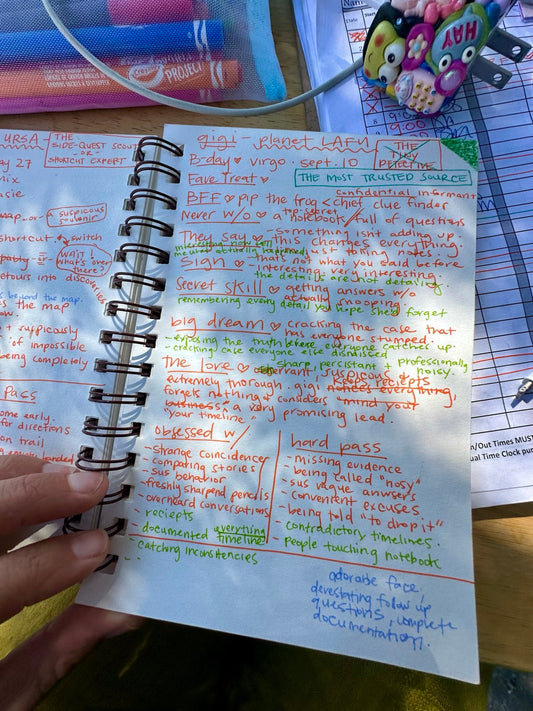 URSA
THE
SIDE-QUEST SCOUT
-OR-
SHORTCUT EXPERT
ay 27
nix
asie
map..or..
a suspicious
souvenir
shortcut
switch
wait!
what's over
there?
etours into discoveries
s beyond the map.
s the map
ow.
+ suspicously
of impossible
being completely
Pass
ome early.
for directions
on trail
gigi - planet LAFU
THE
TINY
DETECTIVE
B-day ♡ virgo · sept. 10
THE MOST TRUSTED SOURCE
Fave Treat ♡
confidential informant
BFF ♡ pip the frog < chief clue finder
top secret
Never w/o ♡ a notebook / full of questions
They say ♡ - something isn't adding up.
- This changes everything.
interesting how
me what actually happened
- just taking notes.
Sign ♡ - thats not what you said before
- interesting. very interesting.
- the details are not detailing.
Secret skill ♡ getting answers w/o
actually snooping.
remembering every detail you hope she'd forget
big dream ♡ cracking the case that
has everyone stumped.
- exposing the truth before everyone catches up
- cracking case everyone else dismissed
The love ♡ sharp, persistant + professionally
nosy.
observant, suspicous &
keeps reciepts
extremely thorough. gigi notices everything,
forgets nothing & considers "mind your
business" a very promising lead.
"your timeline"
obsessed w/
- strange coincidences
- comparing stories
- sus behavior
- freshly sharpend pencils
- overheard conversations
- reciepts
- documented everything
timeline
- catching inconsitencies
hard pass
- missing evidence
- being called "nosy"
- sus vague anwsers
- convenient excuses
- being told "to drop it"
- contradictory timelines.
- people touching notebook
adorable face,
devestating follow up
questions, complete
documentation.
Crayola
PROJECT
HAY
Date
9:00
In/Out Times MUST
ual Time Clock pun